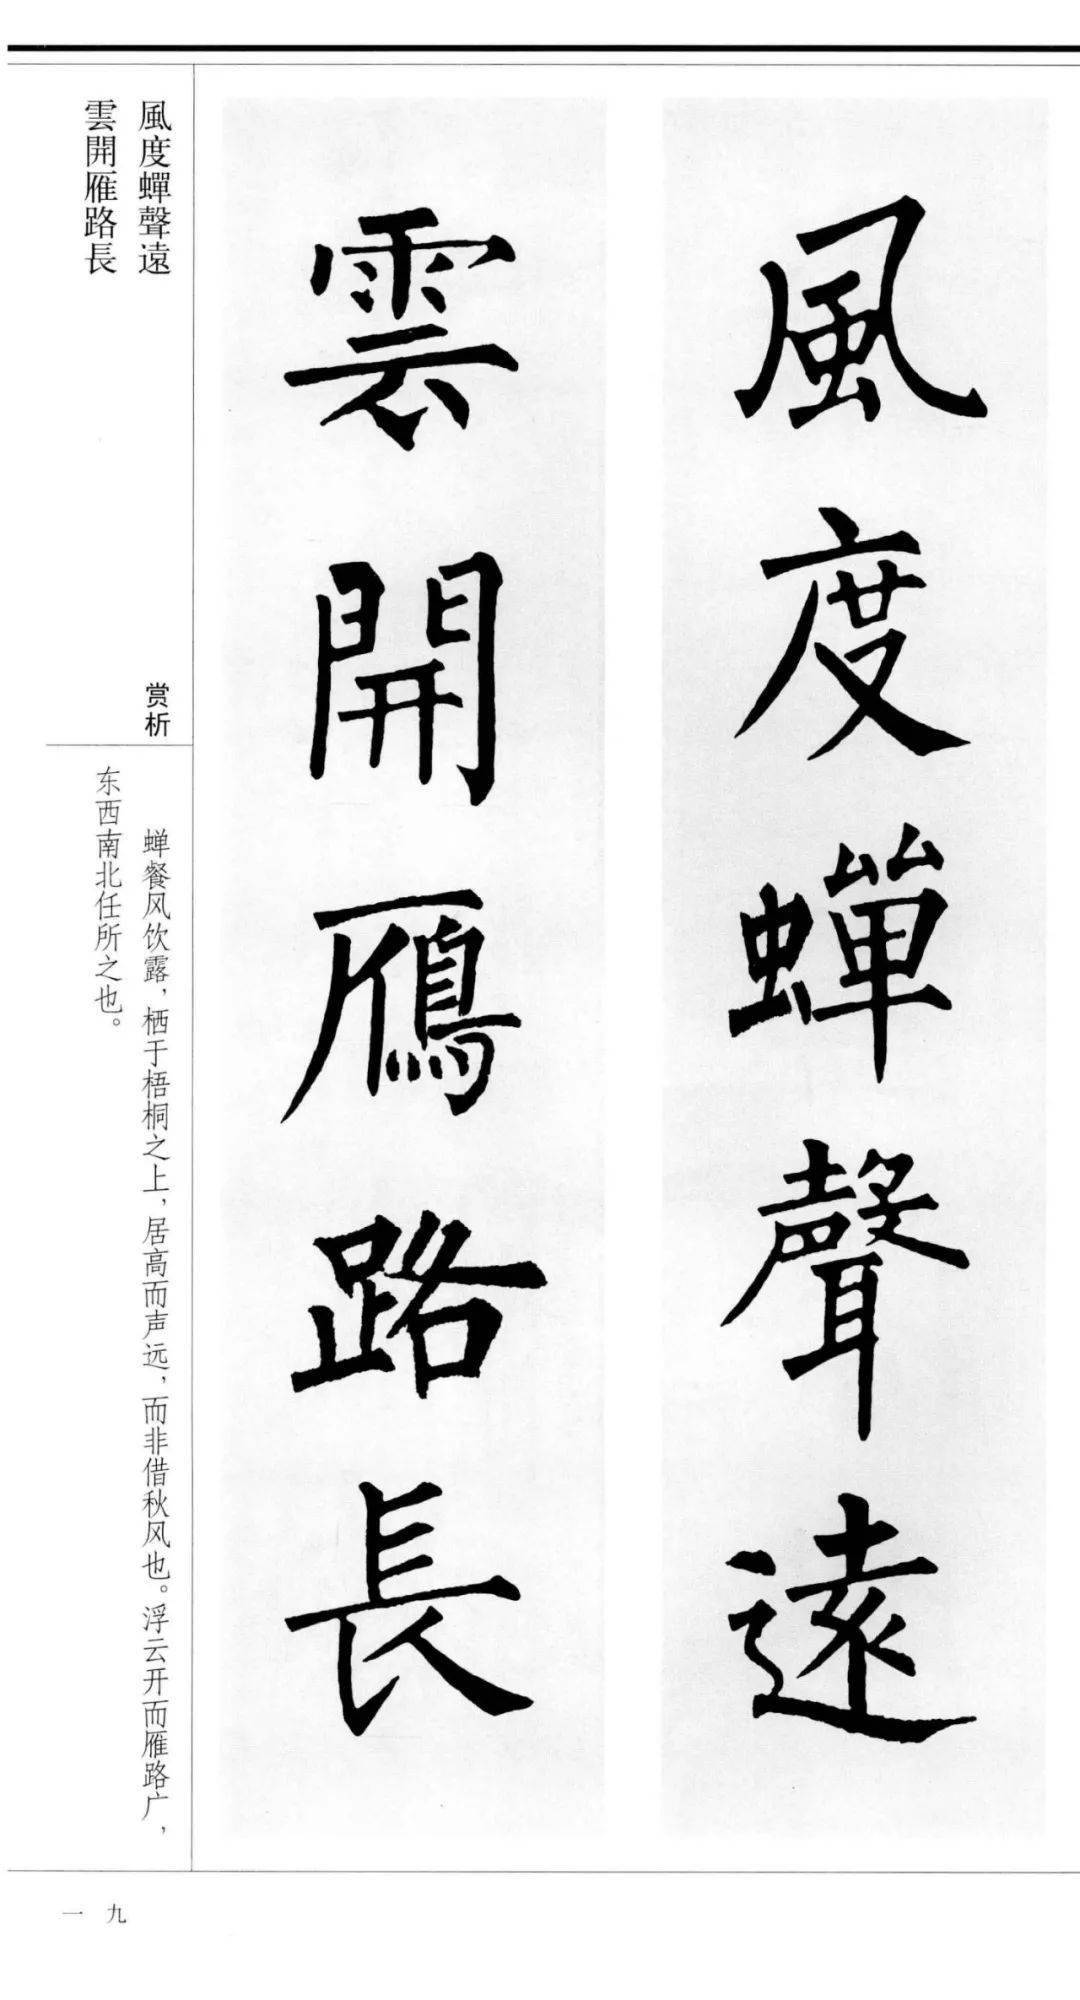 風度蟬聲遠
雲開鴈路長
風度蟬聲遠
雲開雁路長
赏析
蝉餐风饮露，栖于梧桐之上，居高而声远，而非借秋风也。浮云开而雁路广，
东西南北任所之也。
一九